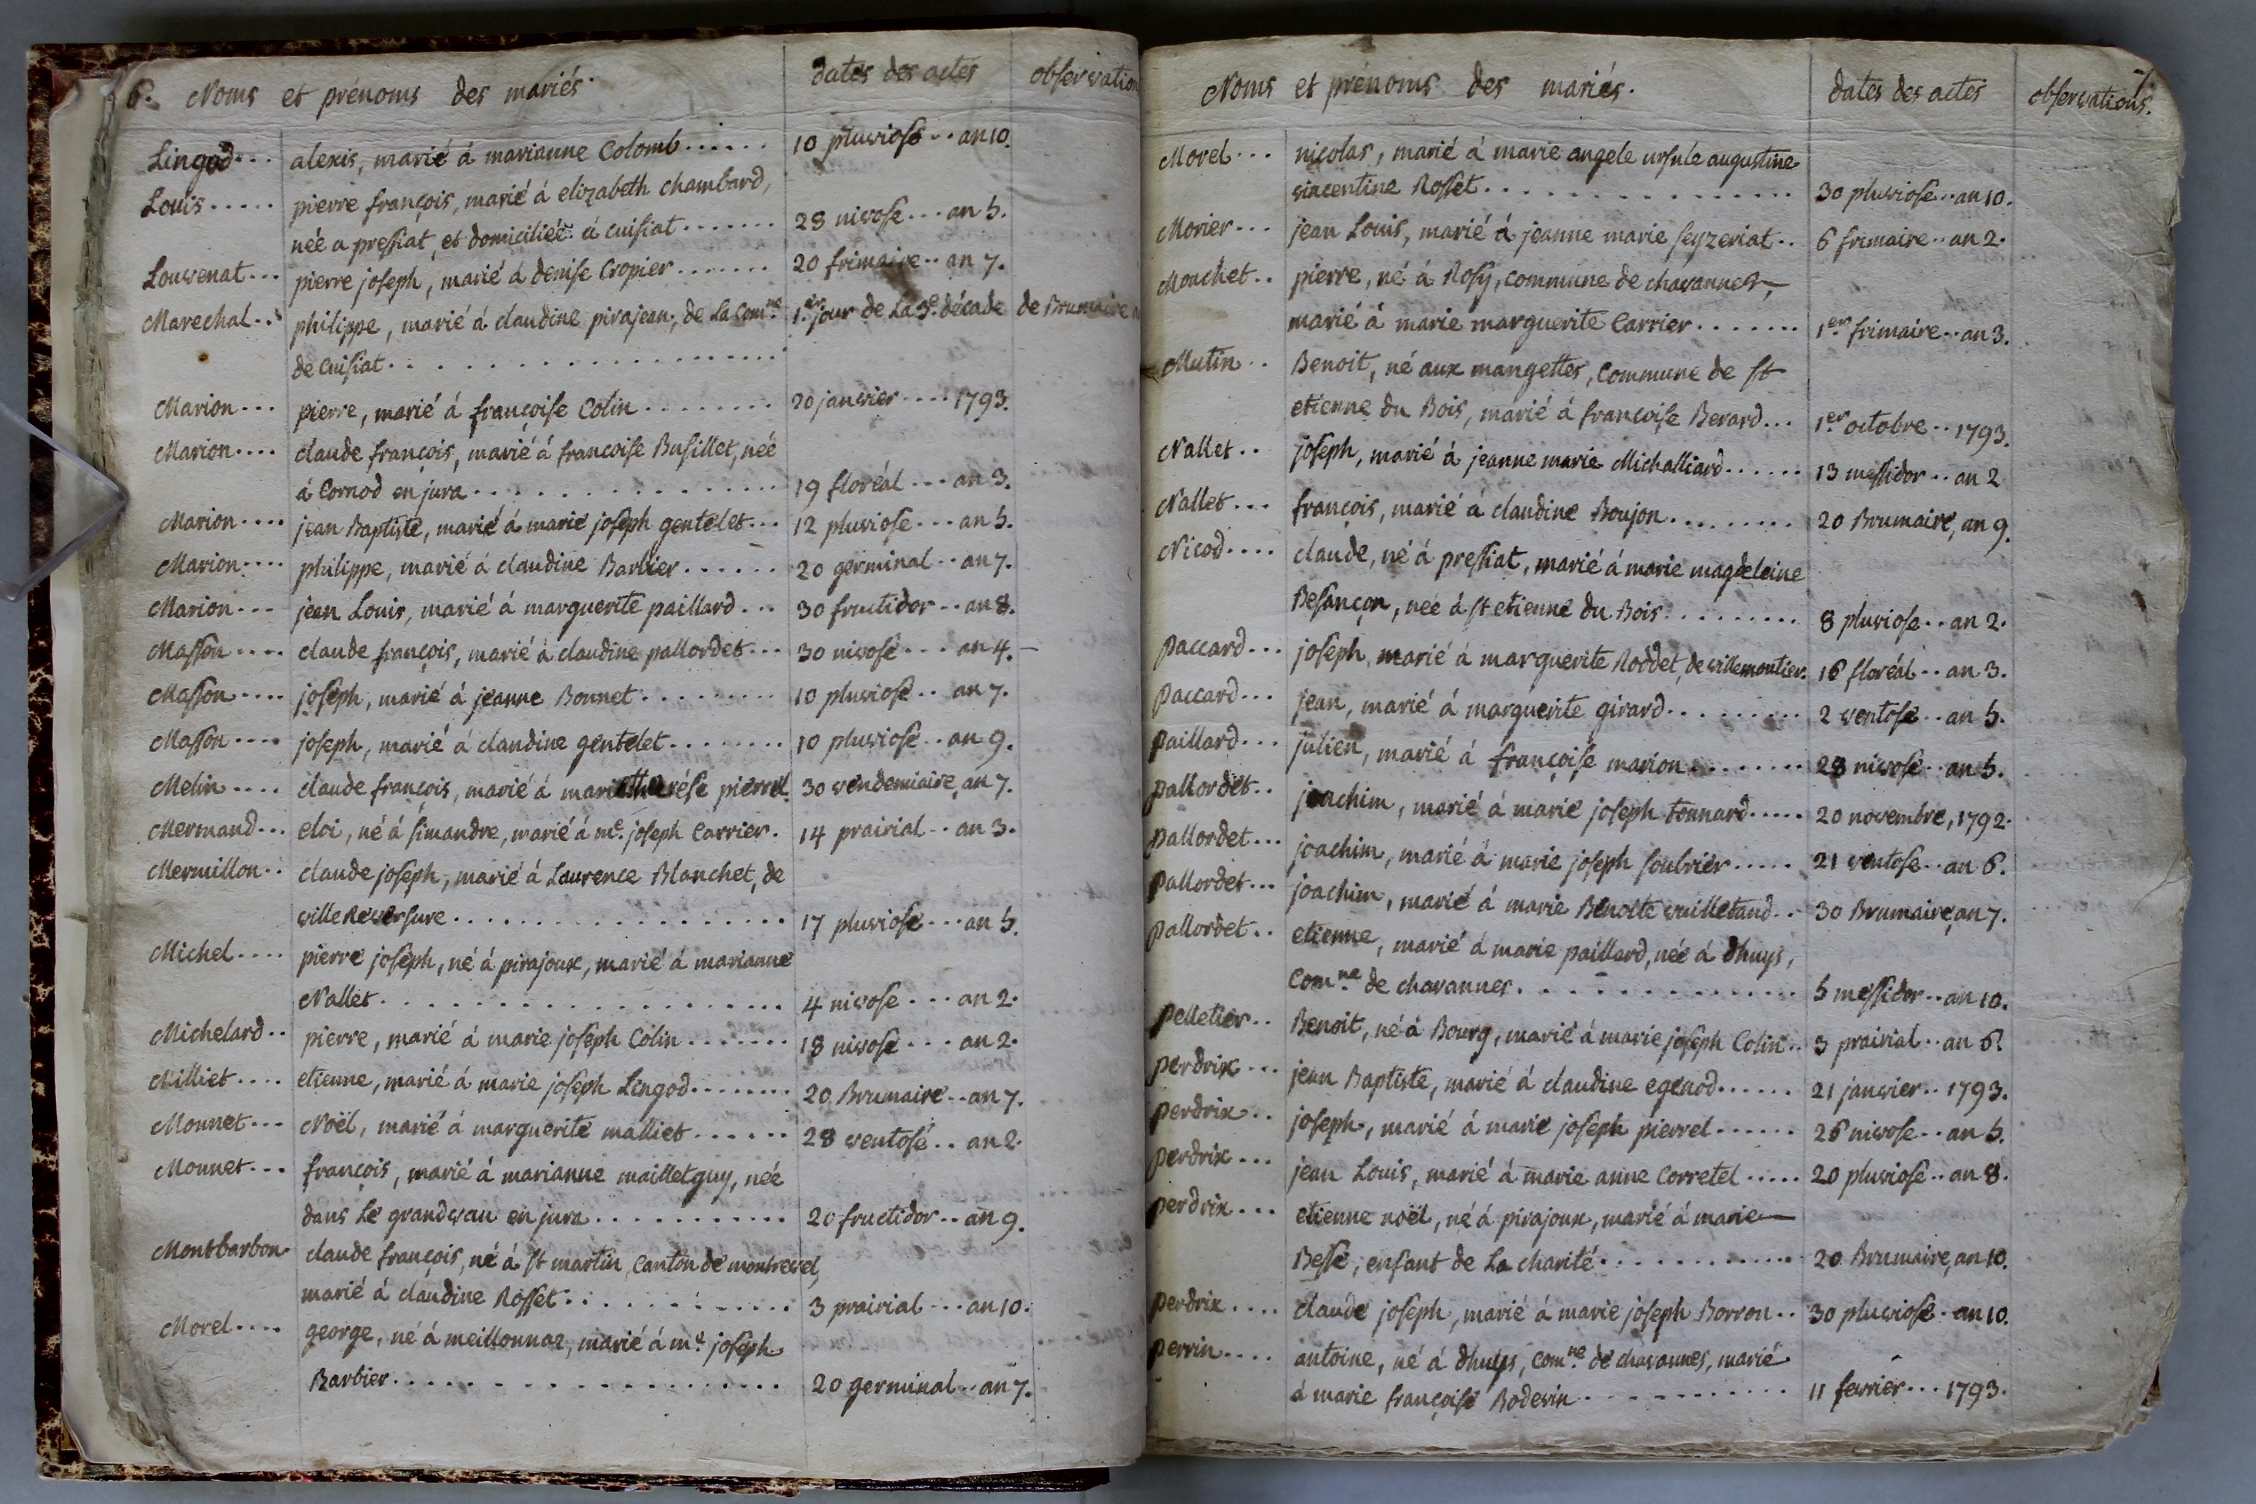 6. Noms et prénoms des mariés. dates des actes observation
Lingod... alexis, marié á marianne Colomb...... 10 pluviose.. an 10.
Louis..... pierre françois, marié á elizabeth chambard,
née a pressiat, et domiciliée á cuisiat....... 28 nivose... an 5.
Louvenat... pierre joseph, marié á denise Cropier....... 20 frimaire.. an 7.
Marechal.. philippe, marié á claudine pirajean, de La Com.ne 1.er jour de La 3.e décade de Brumaire
de Cuisiat...................
Marion... pierre, marié á françoise Colin........ 20 janvier.... 1793.
Marion.... claude françois, marié á francoise Busillet, née
á Cornod en jura............... 19 floréal... an 3.
Marion.... jean Baptiste, marié á marie joseph gentelet... 12 pluviose... an 5.
Marion.... philippe, marié á claudine Barbier...... 20 germinal.. an 7.
Marion... jean Louis, marié á marguerite paillard... 30 fructidor.. an 8.
Masson.... claude françois, marié á claudine pallordet... 30 nivose... an 4.
Masson.... joseph, marié á jeanne Bonnet......... 10 pluviose.. an 7.
Masson.... joseph, marié á claudine gentelet........ 10 pluviose.. an 9.
Melin.... claude françois, marié á marie therése pierrel. 30 vendemiaire, an 7.
Mermand... eloi, né á simandre, marié á m.e joseph Carrier. 14 prairial.. an 3.
Mermillon.. claude joseph, marié á Laurence Blanchet, de
ville Reversure.................. 17 pluviose... an 5.
Michel.... pierre joseph, né á pirajoux, marié á marianne
Nallet..................... 4 nivose... an 2.
Michelard.. pierre, marié á marie joseph Colin....... 18 nivose... an 2.
Milliet.... etienne, marié á marie joseph Lingod........ 20 Brumaire.. an 7.
Monnet... Noël, marié á marguerite malliet...... 28 ventose.. an 2.
Monnet... françois, marié á marianne mailletguy, née
dans Le grandvau en jura........... 20 fructidor.. an 9.
Montbarbon. claude françois, né á St martin, Canton de montrevel,
marié á claudine Rosset............. 3 prairial... an 10.
Morel.... george, né á meillonnaz, marié á m.e joseph
Barbier.................... 20 germinal.. an 7.
7.
Noms et prénoms des mariés. dates des actes observations.
Morel... nicolas, marié á marie angele ursule augustine
vincentine Rosset................ 30 pluviose.. an 10.
Morier... jean Louis, marié á jeanne marie seyzeriat.. 6 frimaire.. an 2.
Mouchet.. pierre, né á Rosy, commune de chavannes,
marié á marie marguerite Carrier....... 1er frimaire.. an 3.
Mutin.. Benoit, né aux mangettes, Commune de St
etienne du Bois, marié á françoise Berard... 1er octobre.. 1793.
Nallet.. joseph, marié á jeanne marie Michalliard...... 13 messidor.. an 2
Nallet... françois, marié á claudine Boujon......... 20 Brumaire, an 9.
Nicod.... claude, né á pressiat, marié á marie magdeleine
Besançon, née á St etienne du Bois......... 8 pluviose.. an 2.
paccard... joseph, marié á marguerite Roddet, de villemontier. 16 floréal.. an 3.
paccard... jean, marié á marguerite girard......... 2 ventose.. an 5.
paillard... julien, marié á françoise marion........ 28 nivose.. an 5.
pallordet.. joachim, marié á marie joseph tonnard..... 20 novembre, 1792.
pallordet... joachim, marié á marie joseph soubrier..... 21 ventose.. an 6.
pallordet... joachim, marié á marie Benoite vuilletand.. 30 Brumaire, an 7.
pallordet.. etienne, marié á marie paillard, née á dhuys,
Com.ne de chavannes............... 5 messidor.. an 10.
pelletier.. Benoit, né á Bourg, marié á marie joseph Colin.. 3 prairial.. an 6.
perdrix... jean Baptiste, marié á claudine egenod...... 21 janvier.. 1793.
perdrix.. joseph, marié á marie joseph pierrel...... 26 nivose.. an 5.
perdrix... jean Louis, marié á marie anne Corretel..... 20 pluviose.. an 8.
perdrix... etienne noël, né á pirajoux, marié á marie
Besse, enfant de La charité............ 20 Brumaire, an 10.
perdrix.... claude joseph, marié á marie joseph Borron.. 30 pluviose. an 10.
perrin.... antoine, né á dhuys, Com.ne de chavannes, marié
á marie françoise Bodevin........... 11 fevrier... 1793.